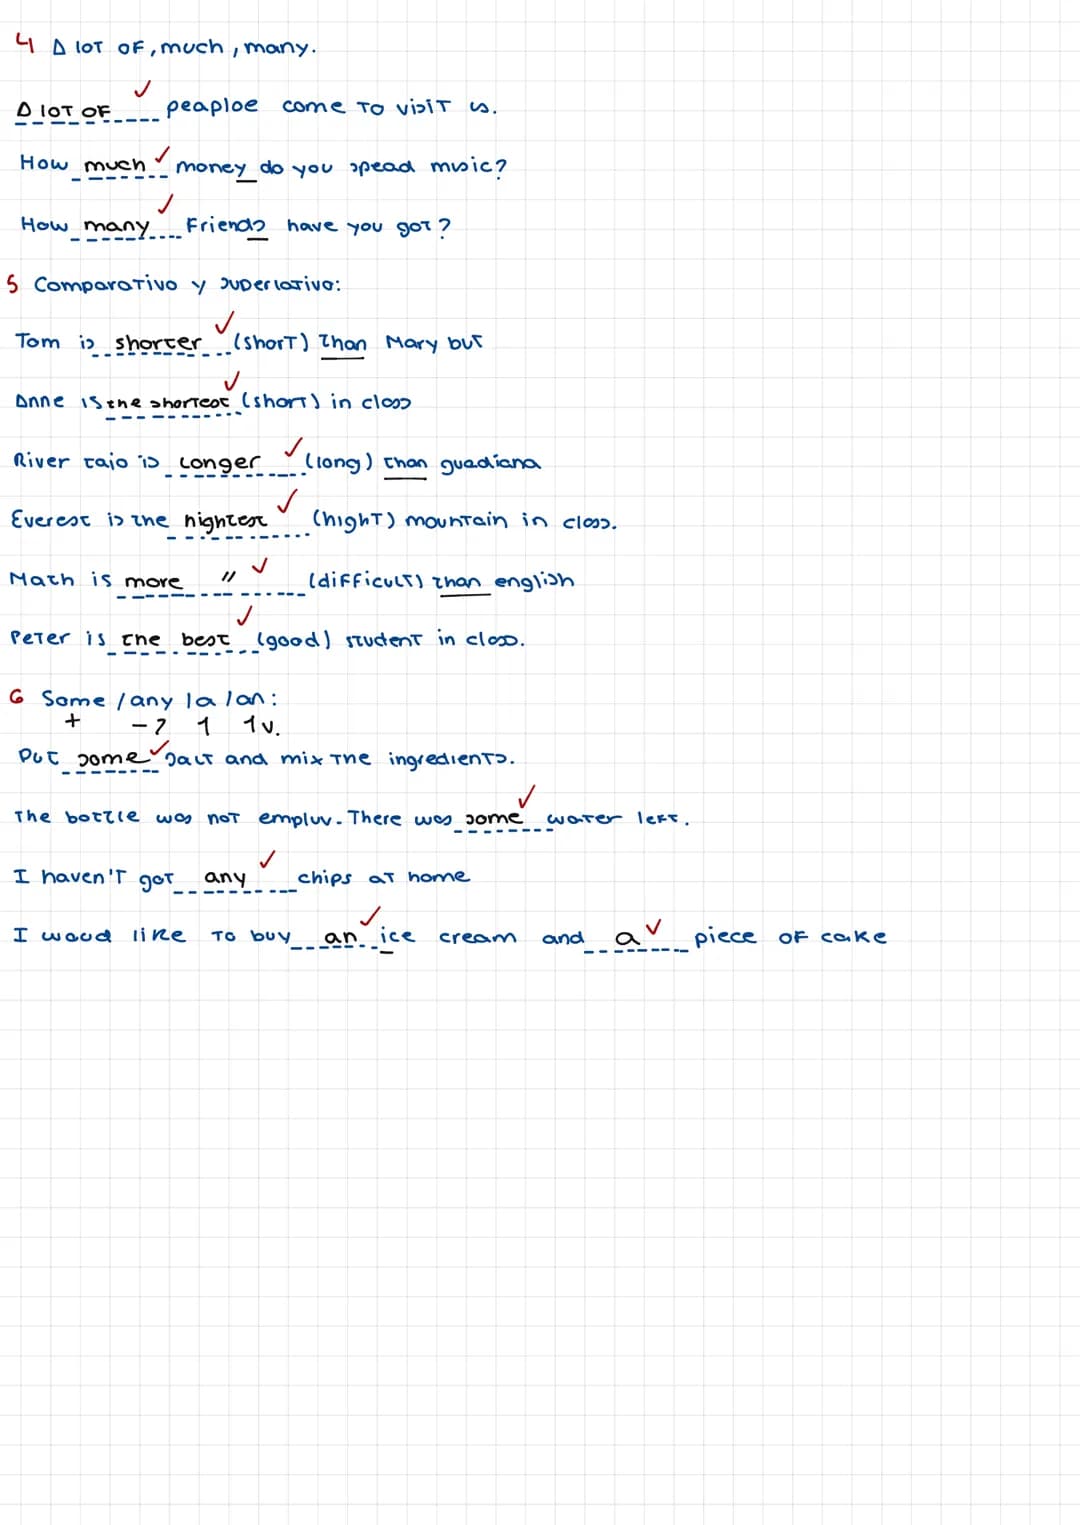 4 A lot of, much, many.
A lot of peaploe come to visit us.
How much money do you spead music?
How many Friends have you got?
5 Comparativo y superlativo:
Tom is shorter (short) than Mary but
Anne is the shortest (short) in class
River tajo is longer (long) than guadiana
Everest is the hightest (hight) mountain in class.
Math is more " (difficult) than english
Peter is the best (good) student in class.
6 Some /any /a /an:
+ - ? 1 1v.
Put some salt and mix the ingredients.
The bottle was not empluv. There was some water left.
I haven't got any chips at home
I woud like to buy an ice cream and a piece of cake